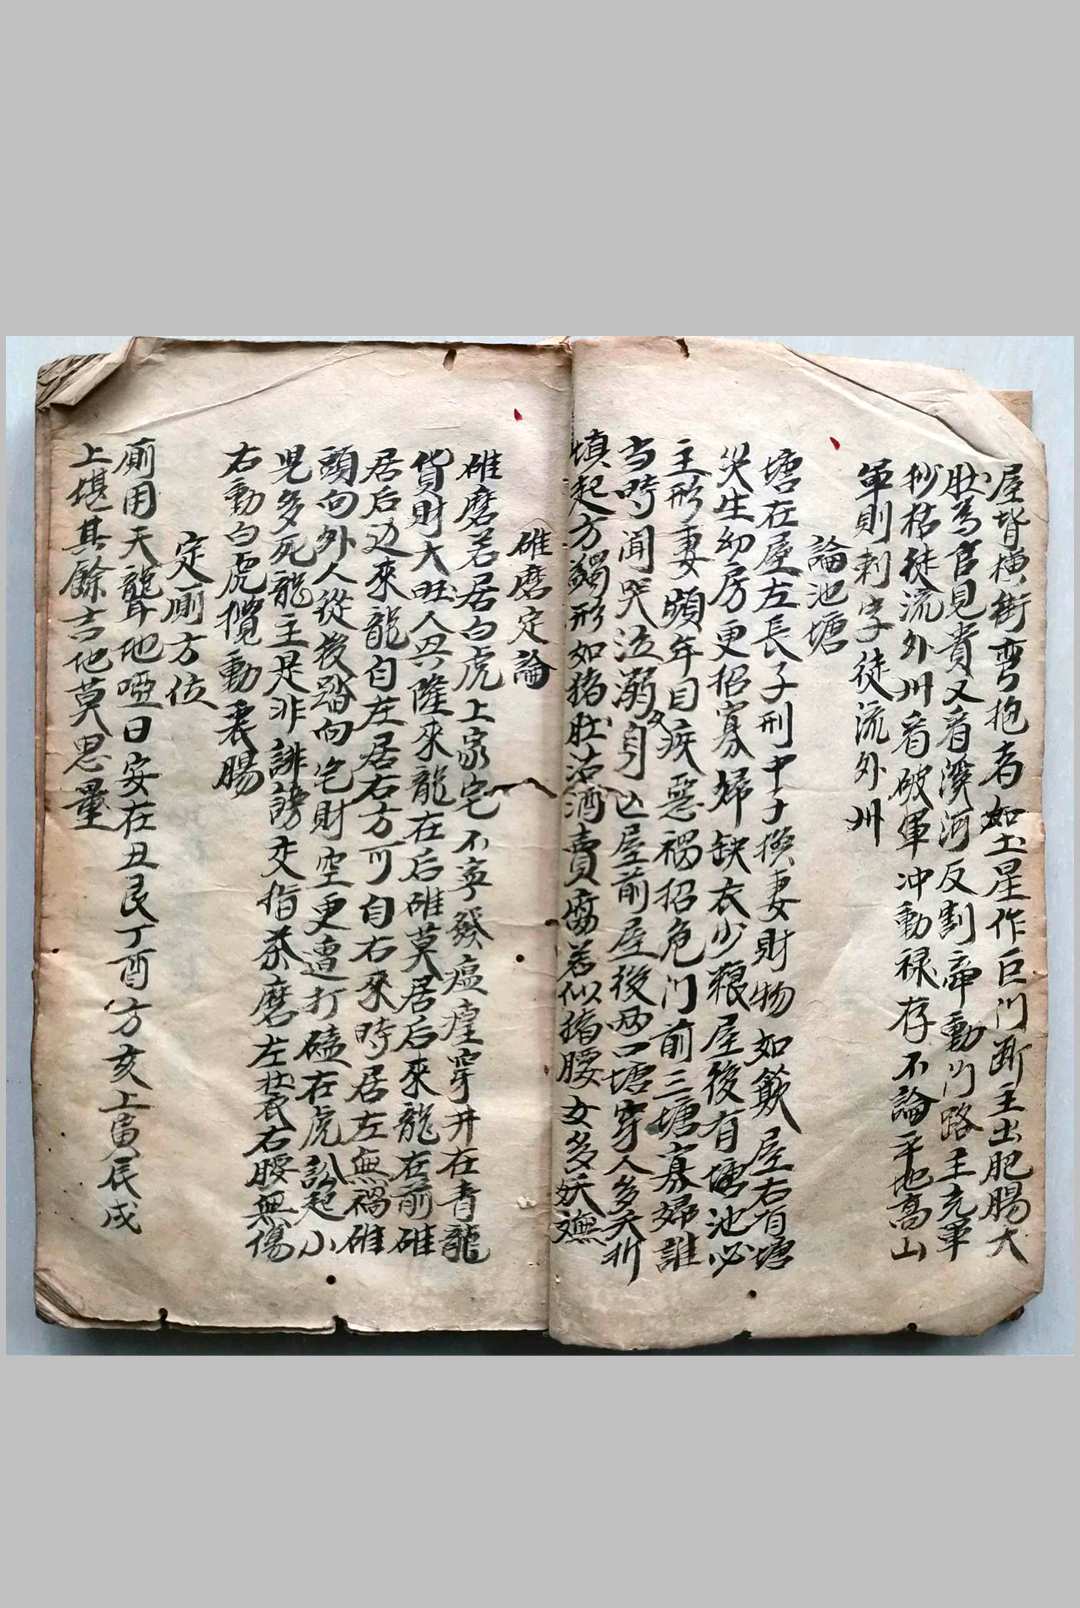 屋背横街弯抱者如土星作巨门断主出肥腸大
肚為官見貴又看溪河反割帝動门路主充軍
秒枯徒流外州看破軍冲動禄存不論平地高山
軍則刺字徒流外州
論池塘
塘在屋左長子刑中子换妻財物如欺屋右有塘
災生幼房更招寡婦缺衣少粮屋後有塘池必
主形妻頻年目疾惡禍招危门前三塘寡婦誰
当時闻哭泣溺身亡屋前屋後两口塘穿人多夭折
填起方蠲形如猪肚沽酒賣 若似猪腰女多妖
碓磨定論
碓磨若居白虎上家宅不寧發瘟瘴穿井在青龍
貨財大旺人興隆來龍在后碓莫居后來龍在前碓
居后边來龍自左居右方可自右來時居左無禍碓
頭向外人從後踏向宅財空更遭打磕在虎訟起小
児多死龍主是非誹謗交指茶磨左 右腰無傷
右動白虎攬動裹腸
定厠方位
廁用天聾地啞日安在丑艮丁酉方亥上寅辰戌
上堪其餘吉地莫思量